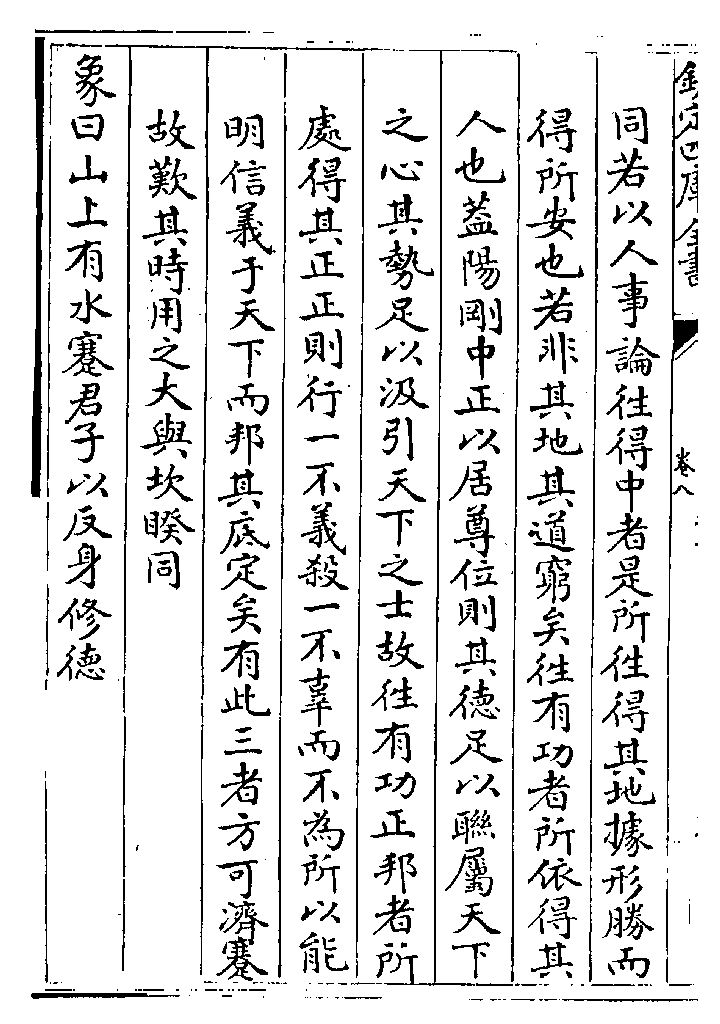 欽定四庫全書
卷八
同若以人事論徃得中者是所徃得其地據形勝而
得所安也若非其地其道窮矣徃有功者所依得其
人也葢陽剛中正以居尊位則其德足以聯屬天下
之心其勢足以汲引天下之士故徃有功正邦者所
處得其正正則行一不義殺一不辜而不為所以能
明信義于天下而邦其底定矣有此三者方可濟蹇
故歎其時用之大與坎睽同
象曰山上有水蹇君子以反身修德